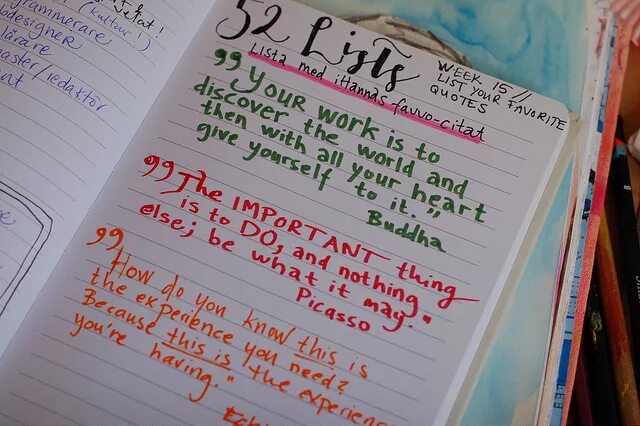 (kultur!)
designer
lärare
master/redaktor
52 Lists
WEEK 15 //
LIST YOUR FAVORITE
QUOTES
Lista med iHannas favvo-citat
"Your work is to
discover the world and
then with all your heart
give yourself to it."
Buddha
"The IMPORTANT thing
is to DO, and nothing
else; be what it may."
Picasso
"How do you know this is
the experience you need?
Because this is the experience
you're having."